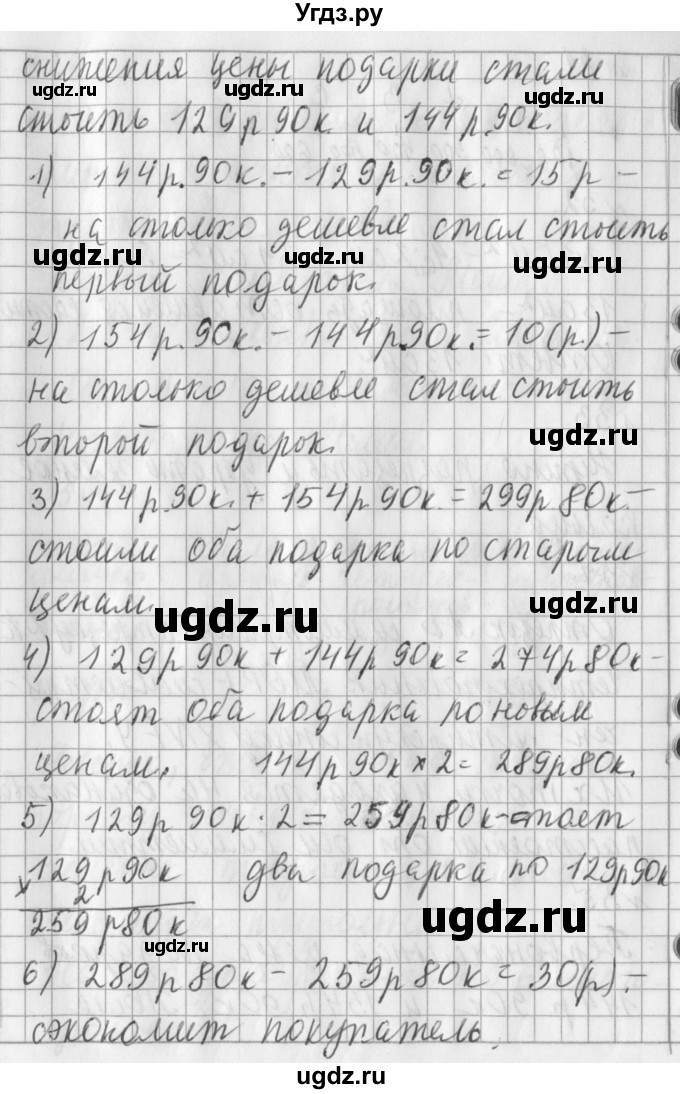 Угдз.ру
снижения цены подарки стали
стоить 129р 90к. и 144р. 90к.
1) 144р. 90к. - 129р. 90к. = 15р -
на столько дешевле стал стоить
первый подарок.
2) 154р. 90к. - 144р. 90к. = 10(р.) -
на столько дешевле стал стоить
второй подарок.
3) 144р. 90к. + 154р 90к. = 299р 80к. -
стоили оба подарка по старым
ценам.
4) 129р 90к + 144р 90к = 274р 80к -
стоят оба подарка по новым
ценам. 144р 90к × 2 = 289р 80к.
5) 129р 90к · 2 = 259р 80к - стоят
129р 90к два подарка по 129р 90к
× 2
259р 80к
6) 289р 80к - 259р 80к = 30(р). -
сэкономит покупатель.
ugdz.ru
ugdz.ru
ugdz.ru
ugdz.ru
ugdz.ru
ugdz.ru
ugdz.ru
ugdz.ru
ugdz.ru
ugdz.ru
ugdz.ru
ugdz.ru
ugdz.ru